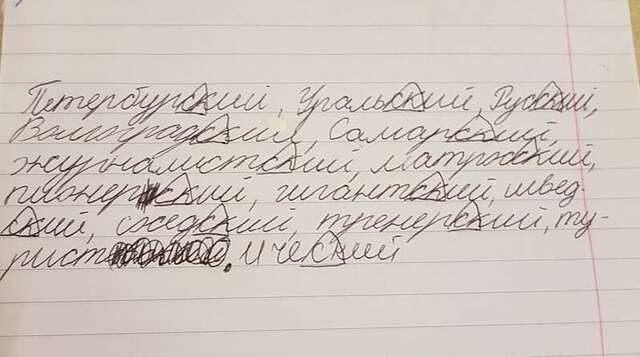 Петербургский, Уральский, Русский,
Волгоградский, Самарский,
журналистский, матросский,
пионерский, гигантский, швед-
ский, соседский, тренерский, ту-
рист. ический